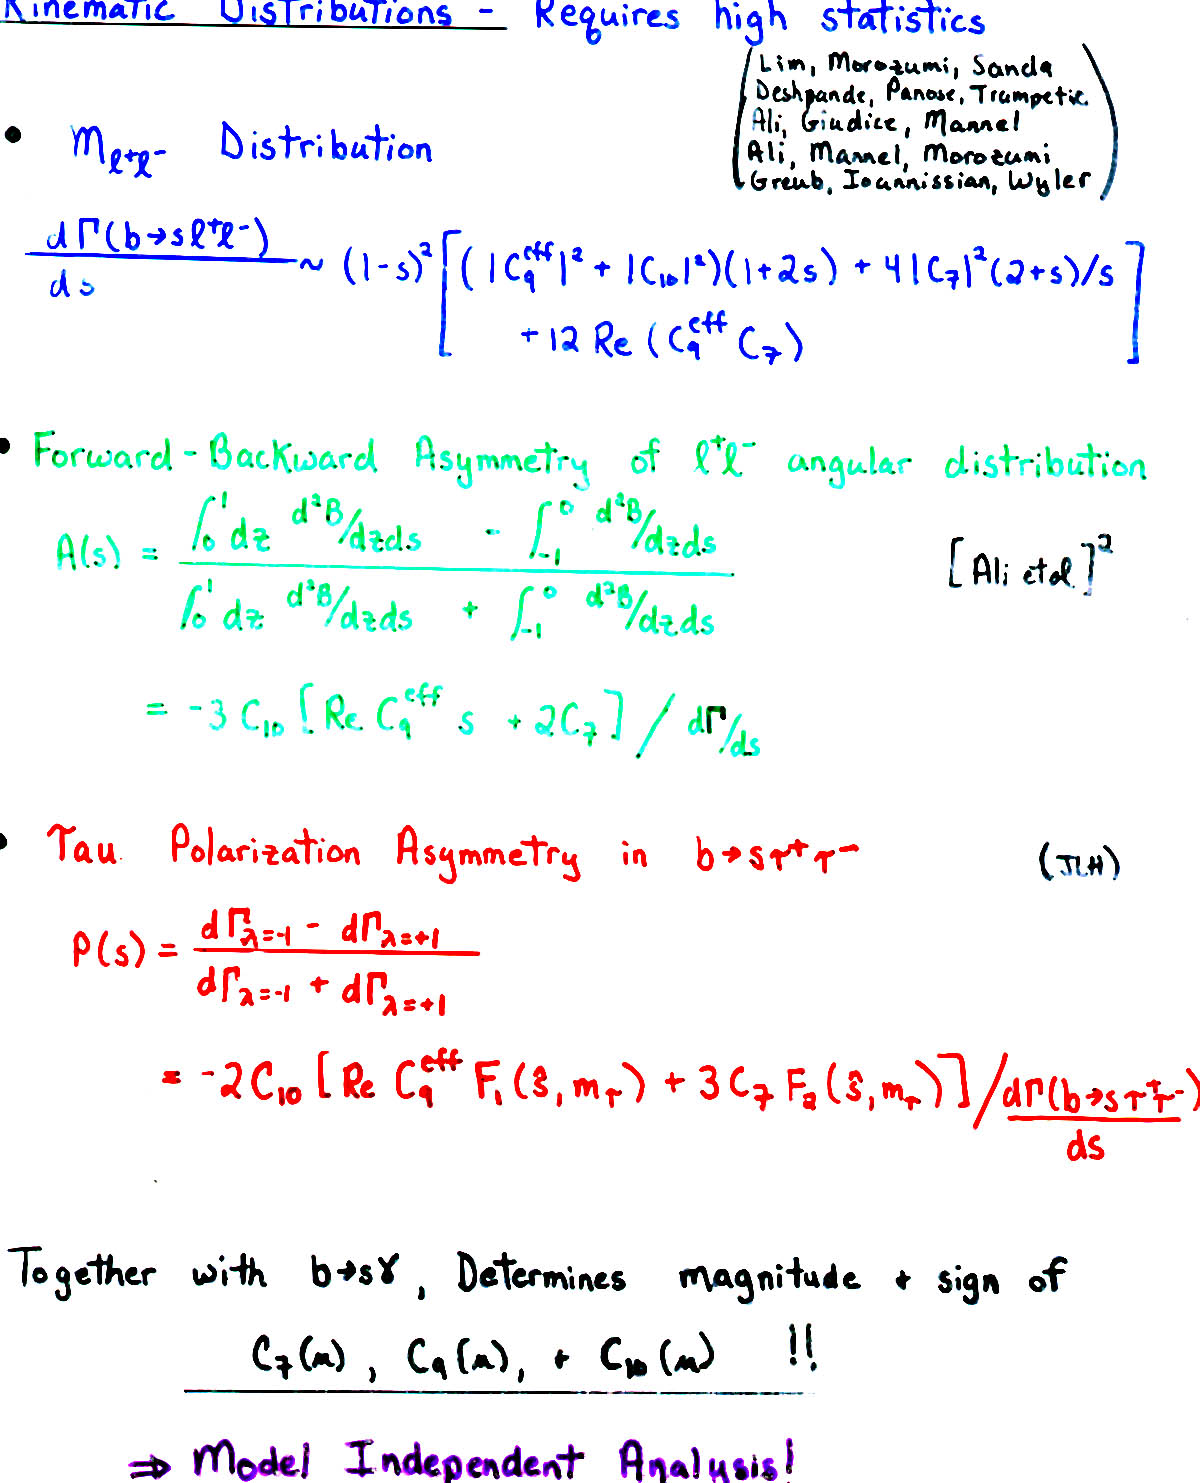 Kinematic Distributions - Requires high statistics
(Lim, Morozumi, Sanda
Deshpande, Panose, Trampetic
Ali, Giudice, Mannel
Ali, Mannel, Morozumi
Greub, Ioannissian, Wyler)
• M_{ℓ⁺ℓ⁻} Distribution
dΓ(b→sℓ⁺ℓ⁻)/ds ~ (1-s)² [(|C₉^{eff}|² + |C₁₀|²)(1+2s) + 4|C₇|²(2+s)/s
+12 Re (C₉^{eff} C₇)]
• Forward-Backward Asymmetry of ℓ⁺ℓ⁻ angular distribution
A(s) = (∫₀¹ dz d²B/dzds - ∫₋₁⁰ d²B/dzds) / (∫₀¹ dz d²B/dzds + ∫₋₁⁰ d²B/dzds) [Ali et al.]²
= -3 C₁₀ [Re C₉^{eff} s + 2C₇] / dΓ/ds
• Tau Polarization Asymmetry in b→sτ⁺τ⁻ (JLH)
P(s) = (dΓ_{λ=-1} - dΓ_{λ=+1}) / (dΓ_{λ=-1} + dΓ_{λ=+1})
= -2C₁₀ [Re C₉^{eff} F₁(ŝ, m_τ) + 3C₇ F₂(ŝ, m_τ)] / dΓ(b→sτ⁺τ⁻)/ds
Together with b→sγ, Determines magnitude + sign of
C₇(μ), C₉(μ), + C₁₀(μ) !!
⇒ Model Independent Analysis!